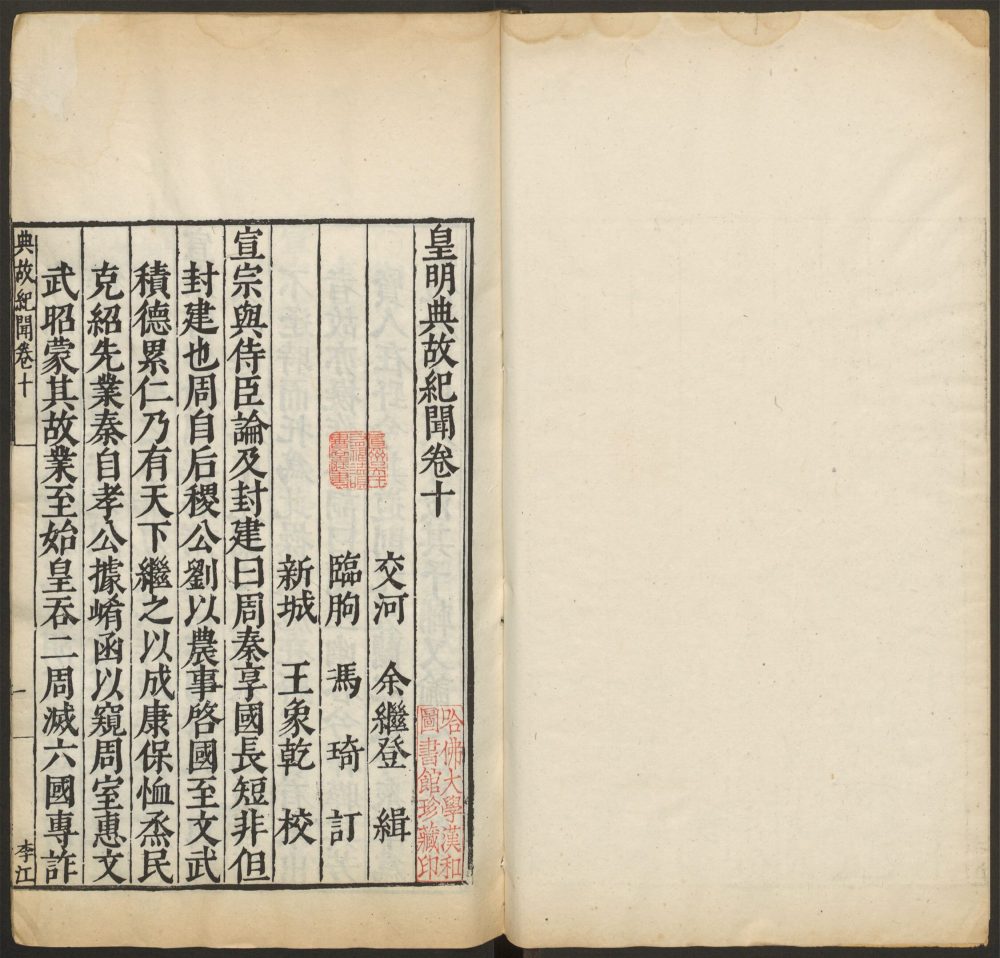 皇明典故紀聞卷十
交河　余繼登　緝
臨朐　馮琦　訂
新城　王象乾　校
宣宗與侍臣論及封建曰周秦享國長短非但
封建也周自后稷公劉以農事啓國至文武
積德累仁乃有天下繼之以成康保恤烝民
克紹先業秦自孝公據崤函以窺周室惠文
武昭蒙其故業至始皇吞二周滅六國專詐
典故紀聞卷十
一
李江
哈佛大學漢和
圖書館珍藏印